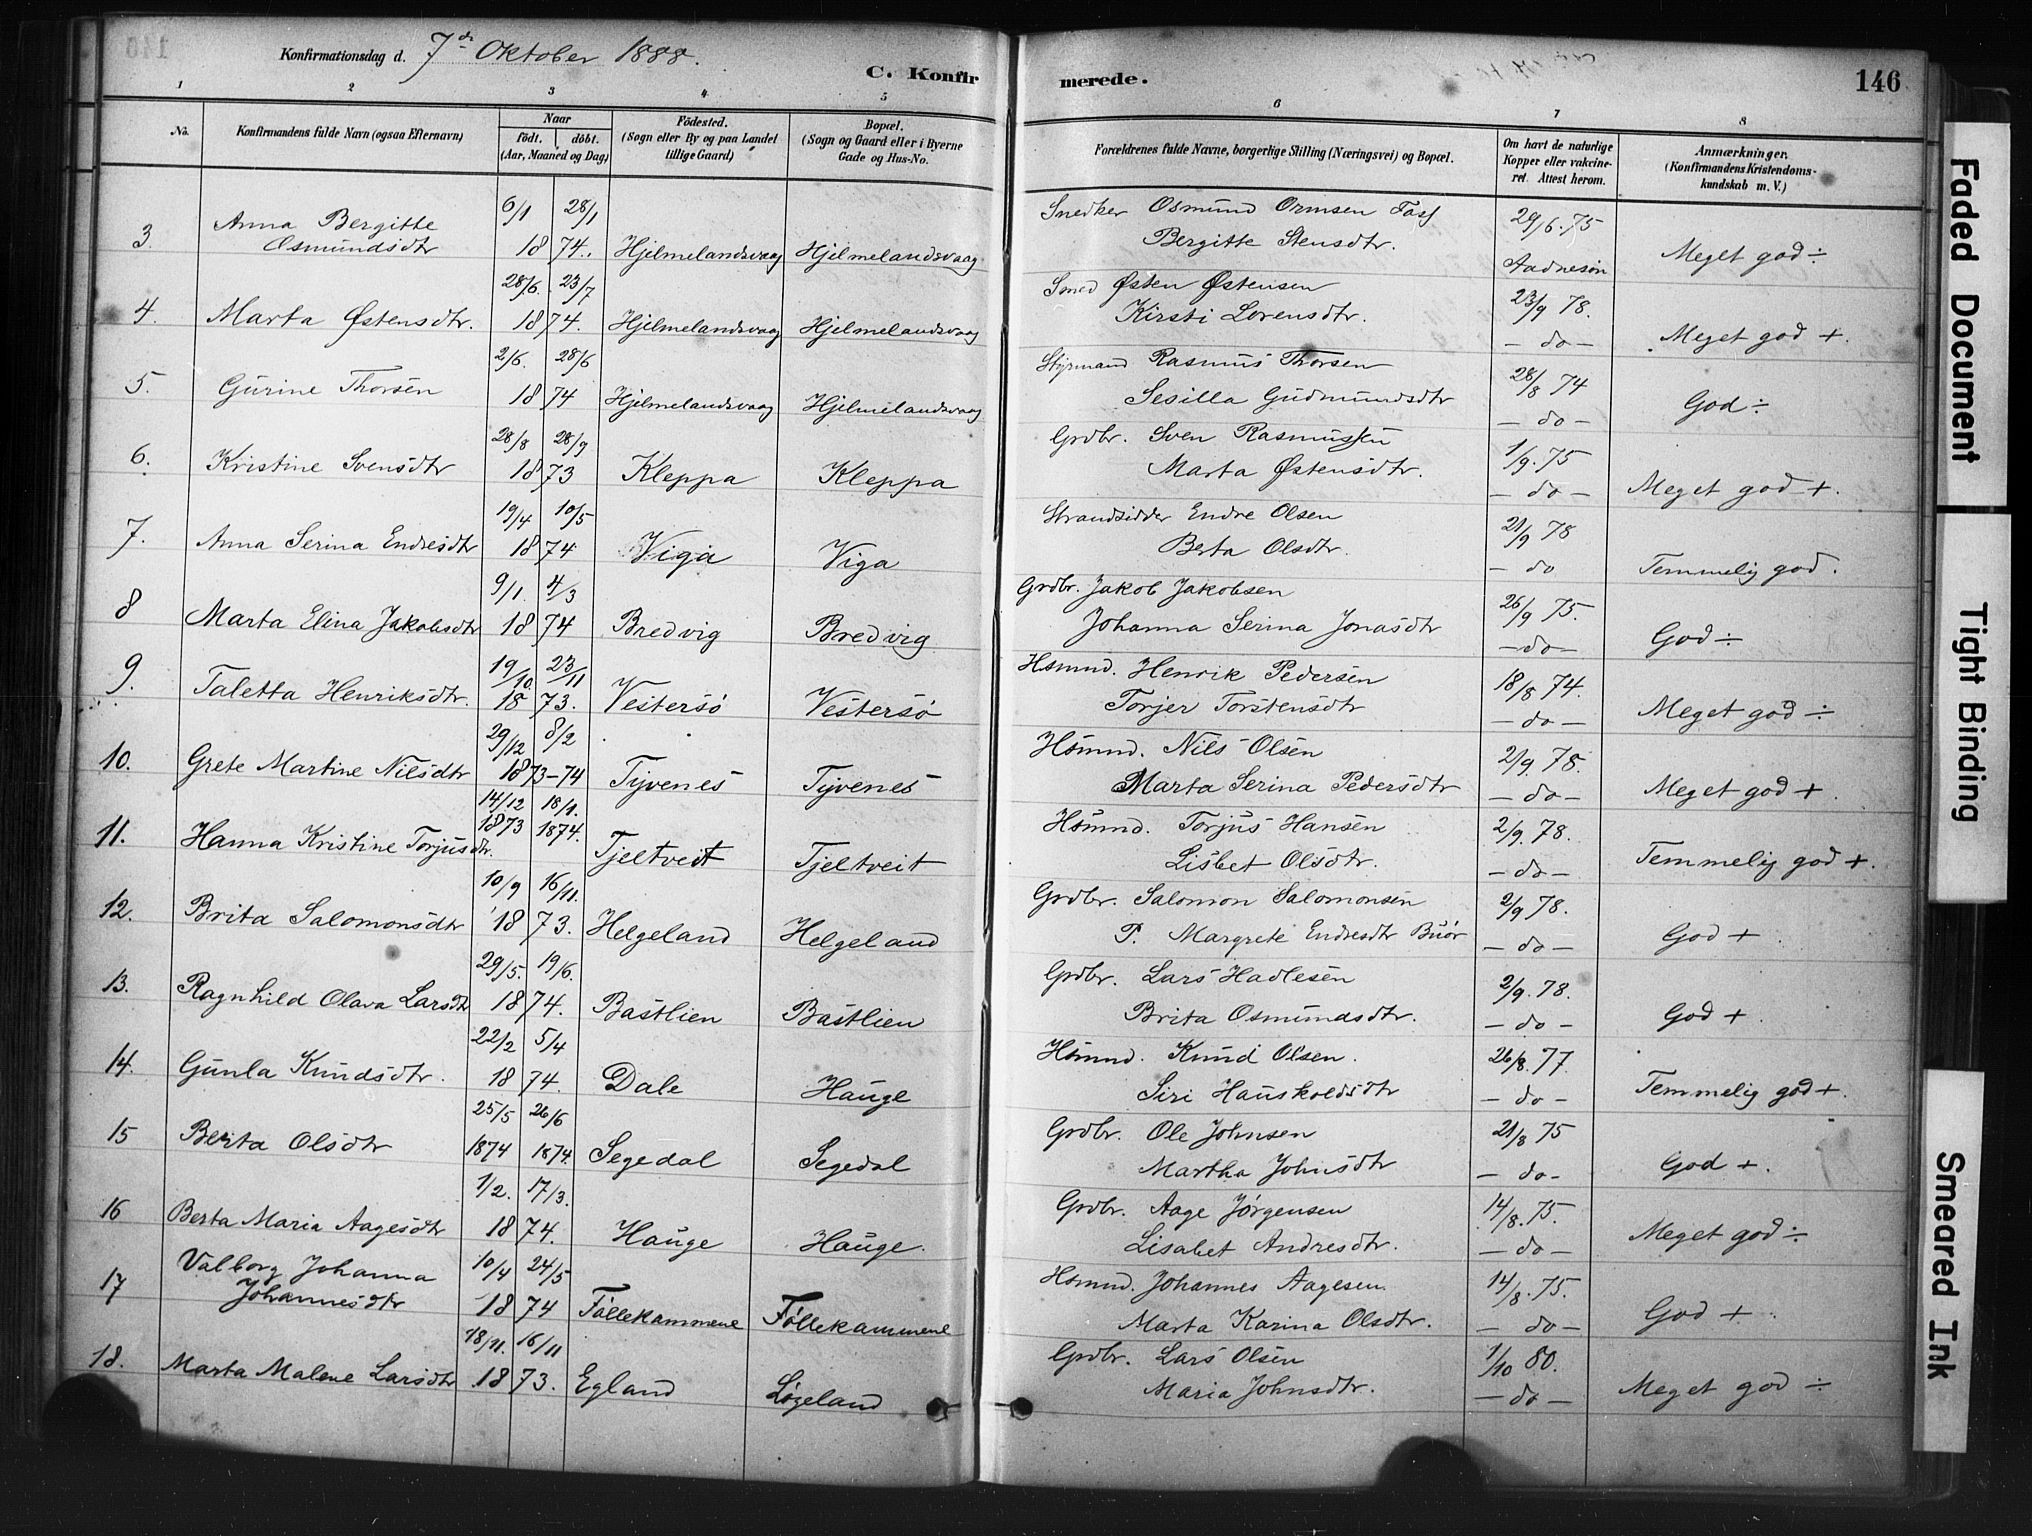 Konfirmationsdag d. 7de Oktober 1888.
C. Konfirmerede.
146
1 2 3 4 5 6 7 8
No.
Konfirmandens fulde Navn (ogsaa Efternavn)
Naar
födt. döbt.
(Aar, Maaned og Dag)
Födested.
(Sogn eller By og paa Landet
tillige Gaard)
Bopæl.
(Sogn og Gaard eller i Byerne
Gade og Hus-No.
Forældrenes fulde Navne, borgerlige Stilling (Næringsvei) og Bopæl.
Om havt de naturlige
Kopper eller vakcine-
ret. Attest herom.
Anmærkninger.
(Konfirmandens Kristendoms-
kundskab m. V.)
6/1 28/1 Snedker Osmund Ormsen 29/6. 75
3 Anna Bergitte
Osmundsdtr 18 74. Hjelmelandsvaag Hjelmelandsvaag Bergitte Stensdtr. Aadnesön Meget god ÷
28/6. 23/7 Smed Østen Østensen 23/9 78.
4. Marta Østensdtr. 18 74. Hjelmelandsvaag Hjelmelandsvaag Kirsti Lorensdtr. - do - Meget god +.
2/6. 28/6 Styrmand Rasmus Thorsen 28/8 74
5. Gurine Thorsen 18 74 Hjelmelandsvaag Hjelmelandsvaag Sesilla Gudmundsdtr - do - God ÷
28/8 28/9 Grdbr. Sven Rasmussen 1/9. 75
6. Kristine Svensdtr 18 73 Kleppa Kleppa Marta Østensdtr. - do - Meget god +.
19/4 10/5 Strandsidder Endre Olsen 21/9 78
7. Anna Serina Endresdtr 18 74 Viga Viga Berta Olsdtr. - do Temmelig god.
9/1. 4/3 Grdbr. Jakob Jakobsen 26/9 75.
8 Marta Elina Jakobsdtr 18 74 Bredvig Bredvig Johanna Serina Jonasdtr - do - God ÷
19/10. 23/11 Hsmnd. Henrik Pedersen 18/8 74.
9. Taletta Henriksdtr. 18 73. Vestersö Vestersö Torjer Torstensdtr - do - Meget god ÷
29/12 8/2 Hsmnd. Nils Olsen 2/9. 78.
10. Grete Martine Nilsdtr 1873-74 Tyvenes Tyvenes Marta Serina Pedersdtr - do - Meget god +
14/12 18/1. Hsmnd. Torjus Hansen 2/9. 78.
11. Hanna Kristine Torjusdtr. 1873 1874. Tjeltveit Tjeltveit Lisbet Olsdtr. - do - Temmelig god +.
10/9 16/11. Grdbr. Salomon Salomonsen 2/9 78.
12. Brita Salomonsdtr 18 73. Helgeland Helgeland P. Margrete Endresdtr Buör - do - God +
29/5. 19/6. Grdbr. Lars Hadlesen 2/9. 78.
13. Ragnhild Olava Larsdtr 18 74. Bastlien Bastlien Brita Osmundsdtr. - do - God +.
22/2 5/4 Hsmnd. Knud Olsen. 26/8. 77.
14. Gunla Knudsdtr. 18 74. Dale Hauge Siri Hauskoldsdtr - do - Temmelig god +.
25/5 26/6 Grdbr. Ole Johnsen 21/8 75
15 Berta Olsdtr 1874 1874. Segedal Segedal Martha Johnsdtr - do - God +.
1/2. 17/3. Grdbr. Aage Jørgensen 14/8. 75.
16 Berta Maria Aagesdtr 18 74. Hauge Hauge. Lisabet Andresdtr. - do - Meget god ÷
10/4 24/5 Hsmnd. Johannes Aagesen 14/8. 75.
17 Valborg Johanna
Johannesdtr 18 74 Föllekammene Føllekammene Marta Karina Olsdtr. - do - God +
18/11. 16/11 Grdbr. Lars Olsen 1/10 80.
18. Marta Malene Larsdtr 18 73. Egland Løgeland Maria Johnsdtr. - do - Meget god ÷
Faded Document
Tight Binding
Smeared Ink